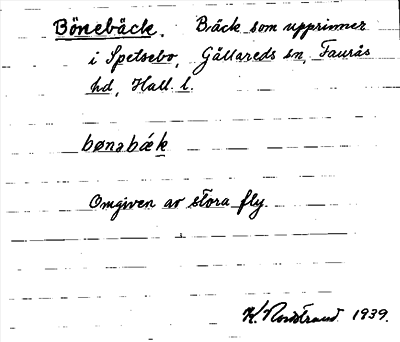 Bönebäck. Bäck som upprinner
i Spetsebo, Gällareds sn, Faurås
hd, Hall. l.
bønəbǽk
Omgiven av stora fly.
K. Nordstrand 1939.